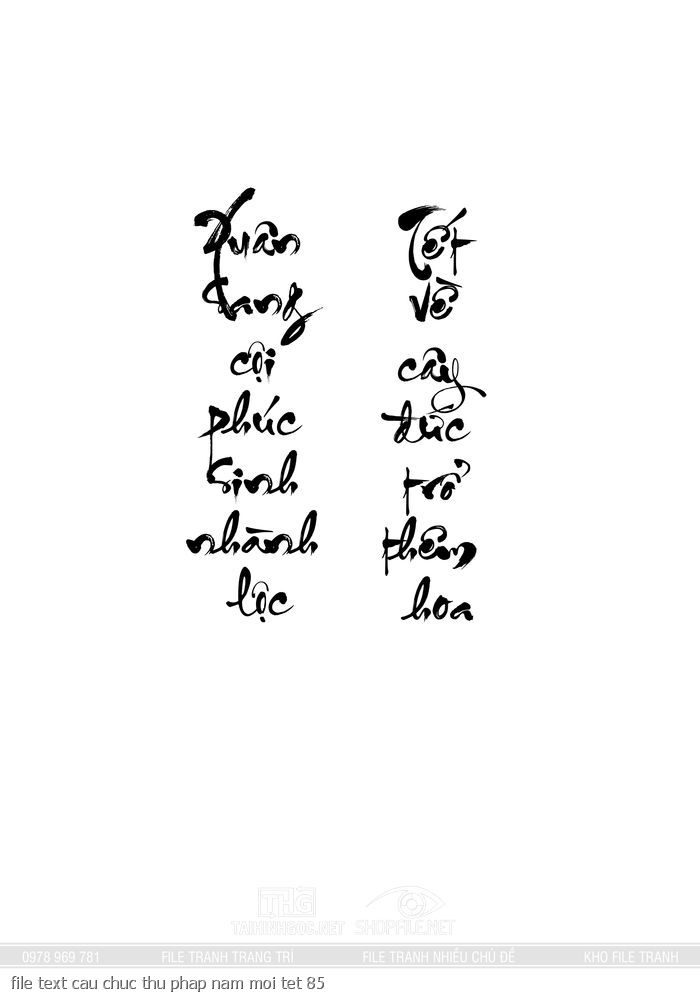 Xuân
sang
cội
phúc
sinh
nhành
lộc
Tết
về
cây
đức
trổ
thêm
hoa
THG
TAIHINHGOC.NET
SHOPFILE.NET
0978 969 781
FILE TRANH TRANG TRÍ
FILE TRANH NHIỀU CHỦ ĐỀ
KHO FILE TRANH
file text cau chuc thu phap nam moi tet 85